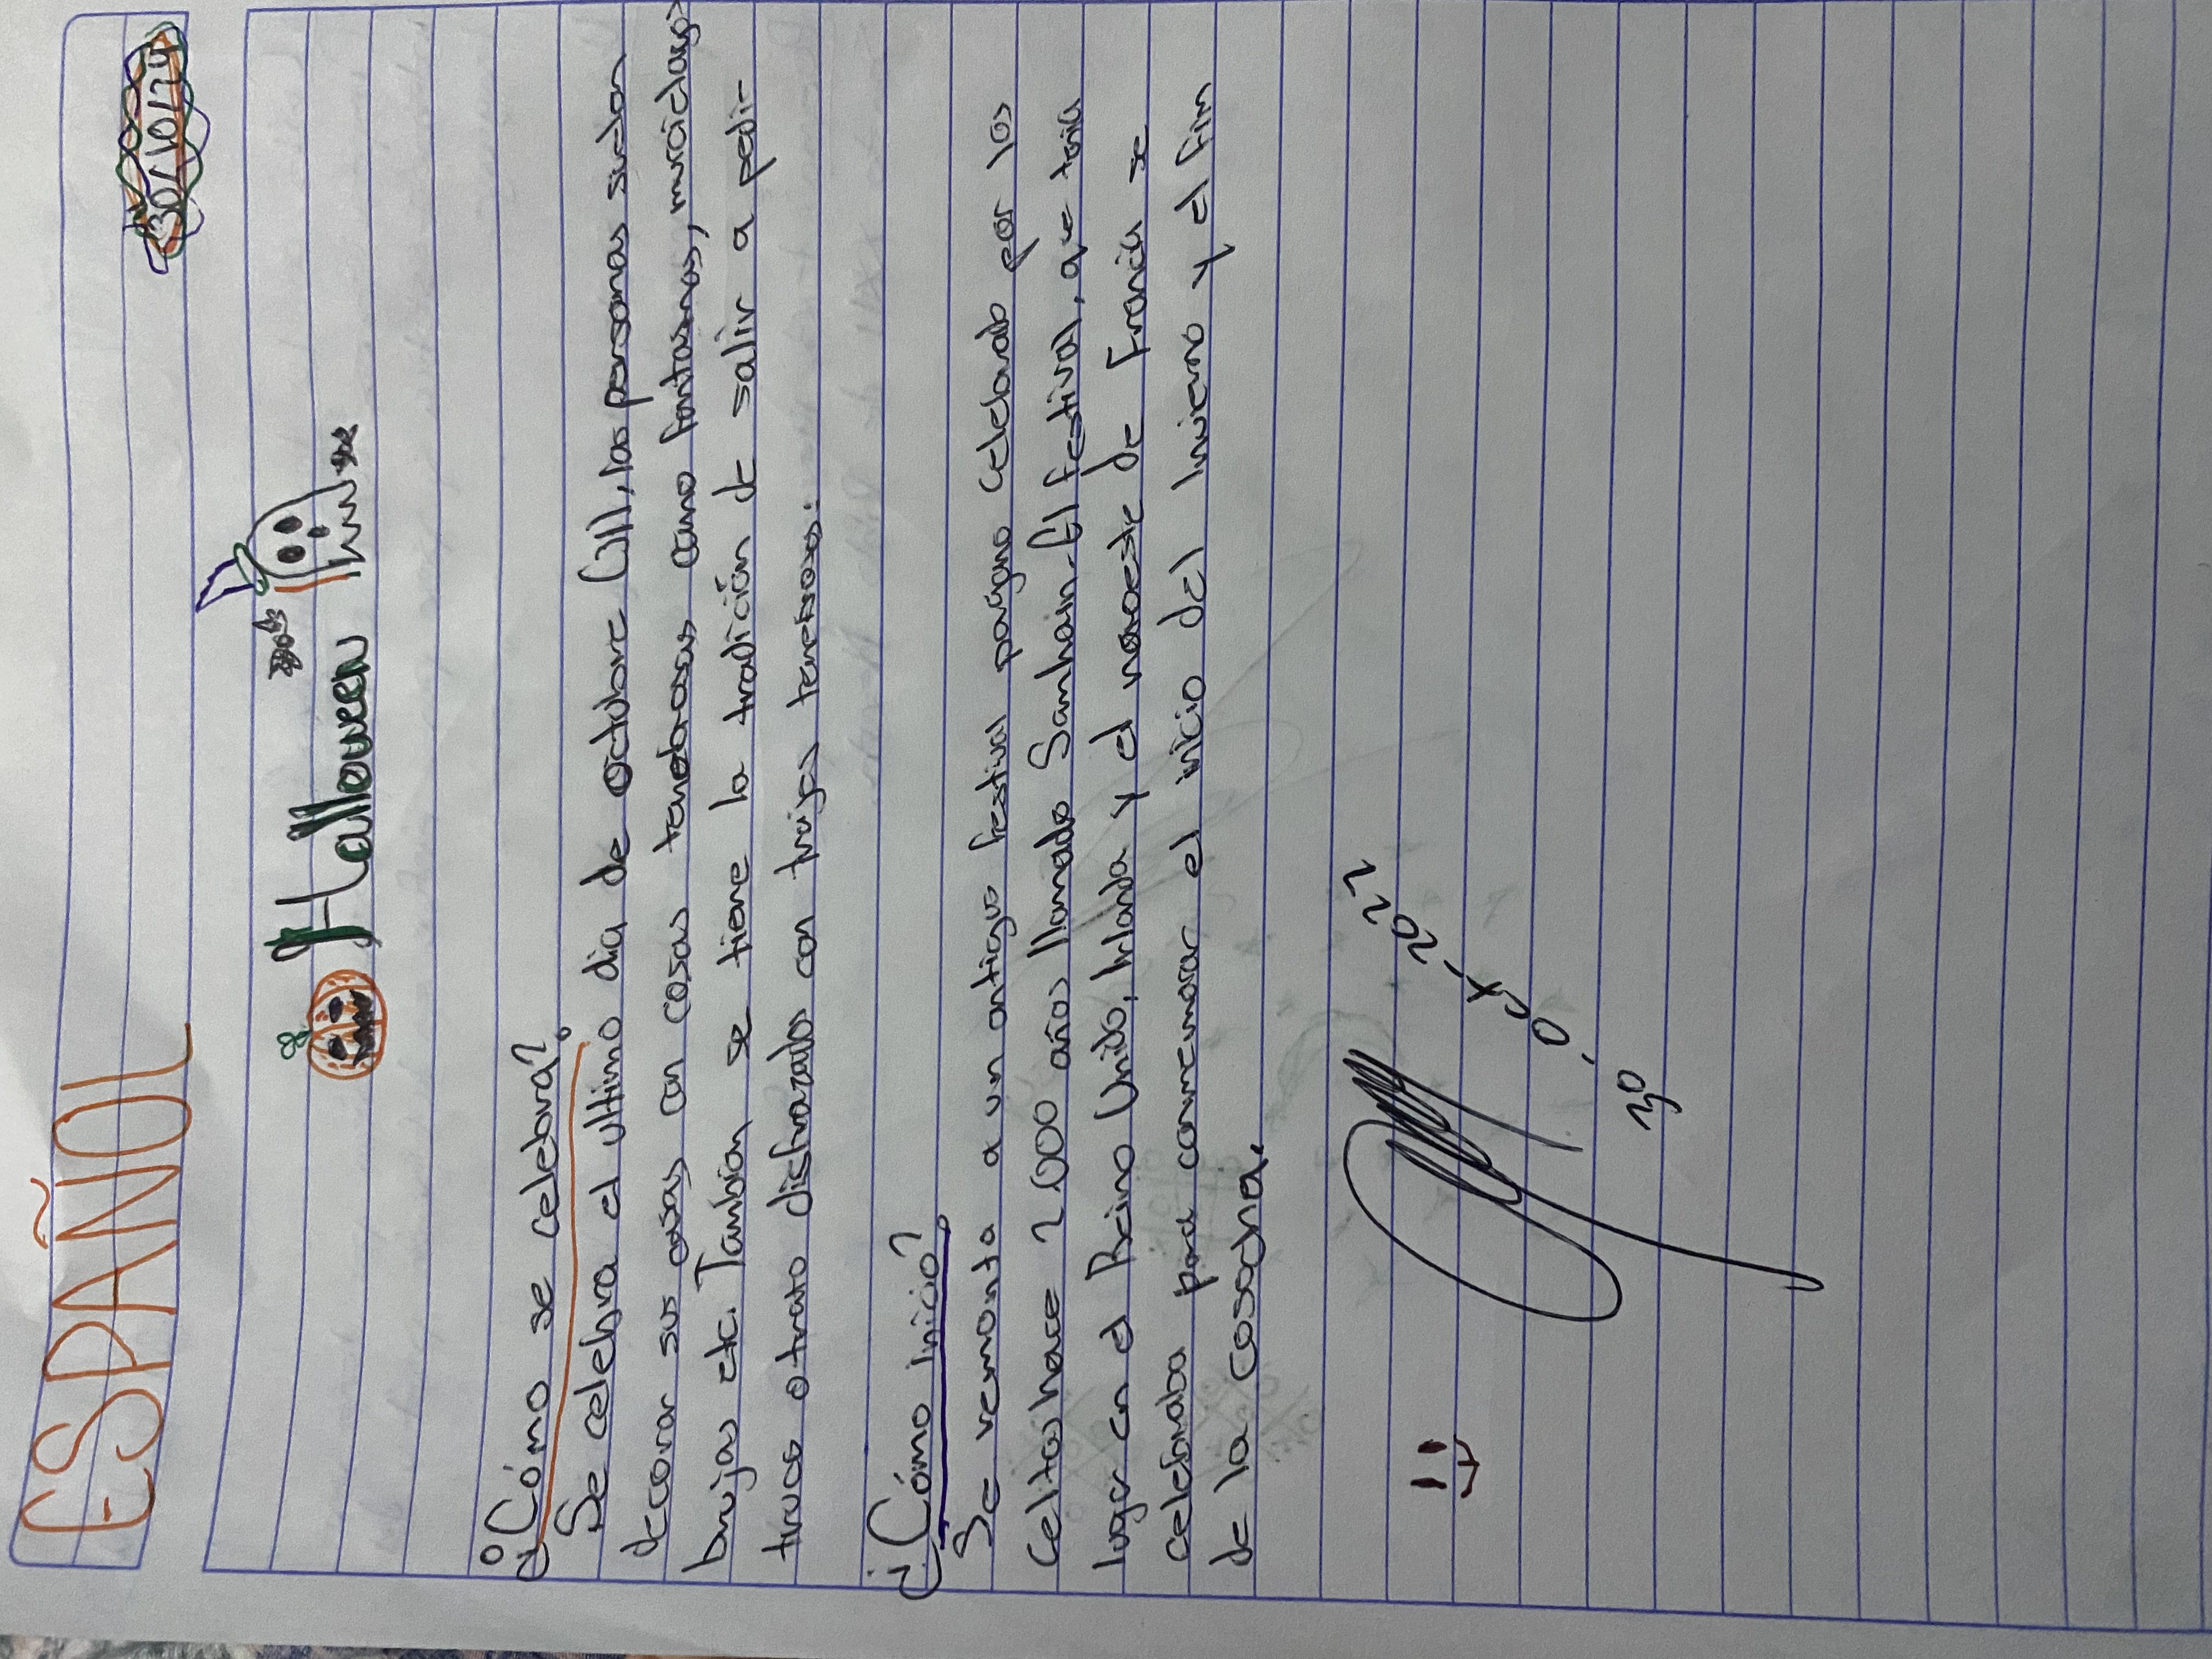 ESPAÑOL
30/10/24
Halloween
¿Cómo se celebra?
Se celebra el ultimo dia de octubre (31), las personas suelen
decorar sus casas con cosas tenebrosas como fantasmas, murcielagos
brujas etc. Tambien se tiene la tradición de salir a pedir
truco o trato disfrazados con trajes terrosos.
¿Cómo inicio?
Se remonta a un antiguo festival pagano celebrado por los
Celtas hace 2000 años llamado Samhain. El festival, que tenia
lugar en el Reino Unido, Irlanda y el noroeste de Francia se
celebraba para conmemorar el inicio del Invierno y el fin
de la cosecha.
30-Oct-2022